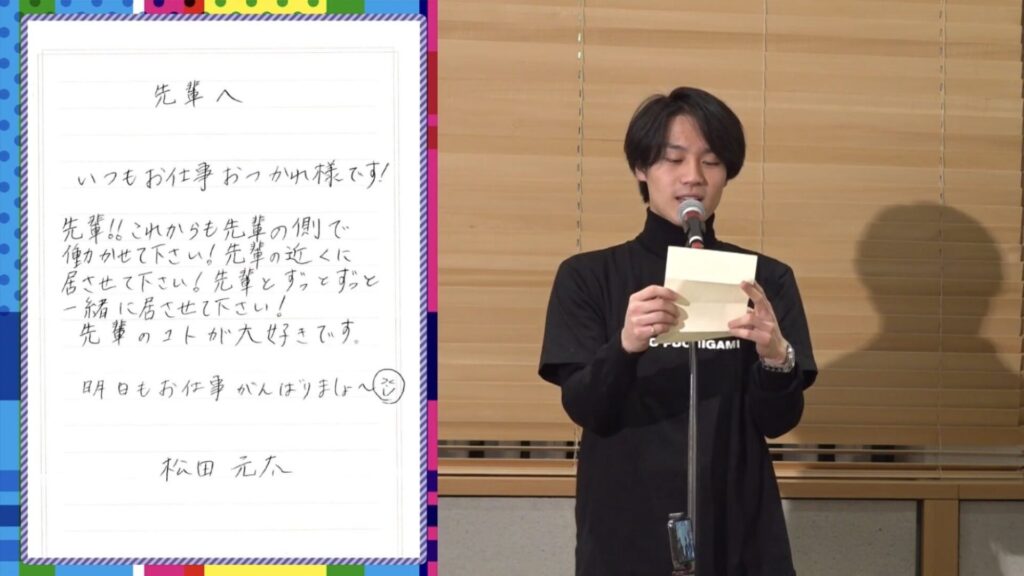 先輩へ
いつもお仕事おつかれ様です!
先輩!!これからも先輩の側で
働かせて下さい!先輩の近くに
居させて下さい!先輩とずっとずっと
一緒に居させて下さい!
先輩のコトが大好きです。
明日もお仕事がんばりましょ〜
松田 元太
FUCHIGAMI